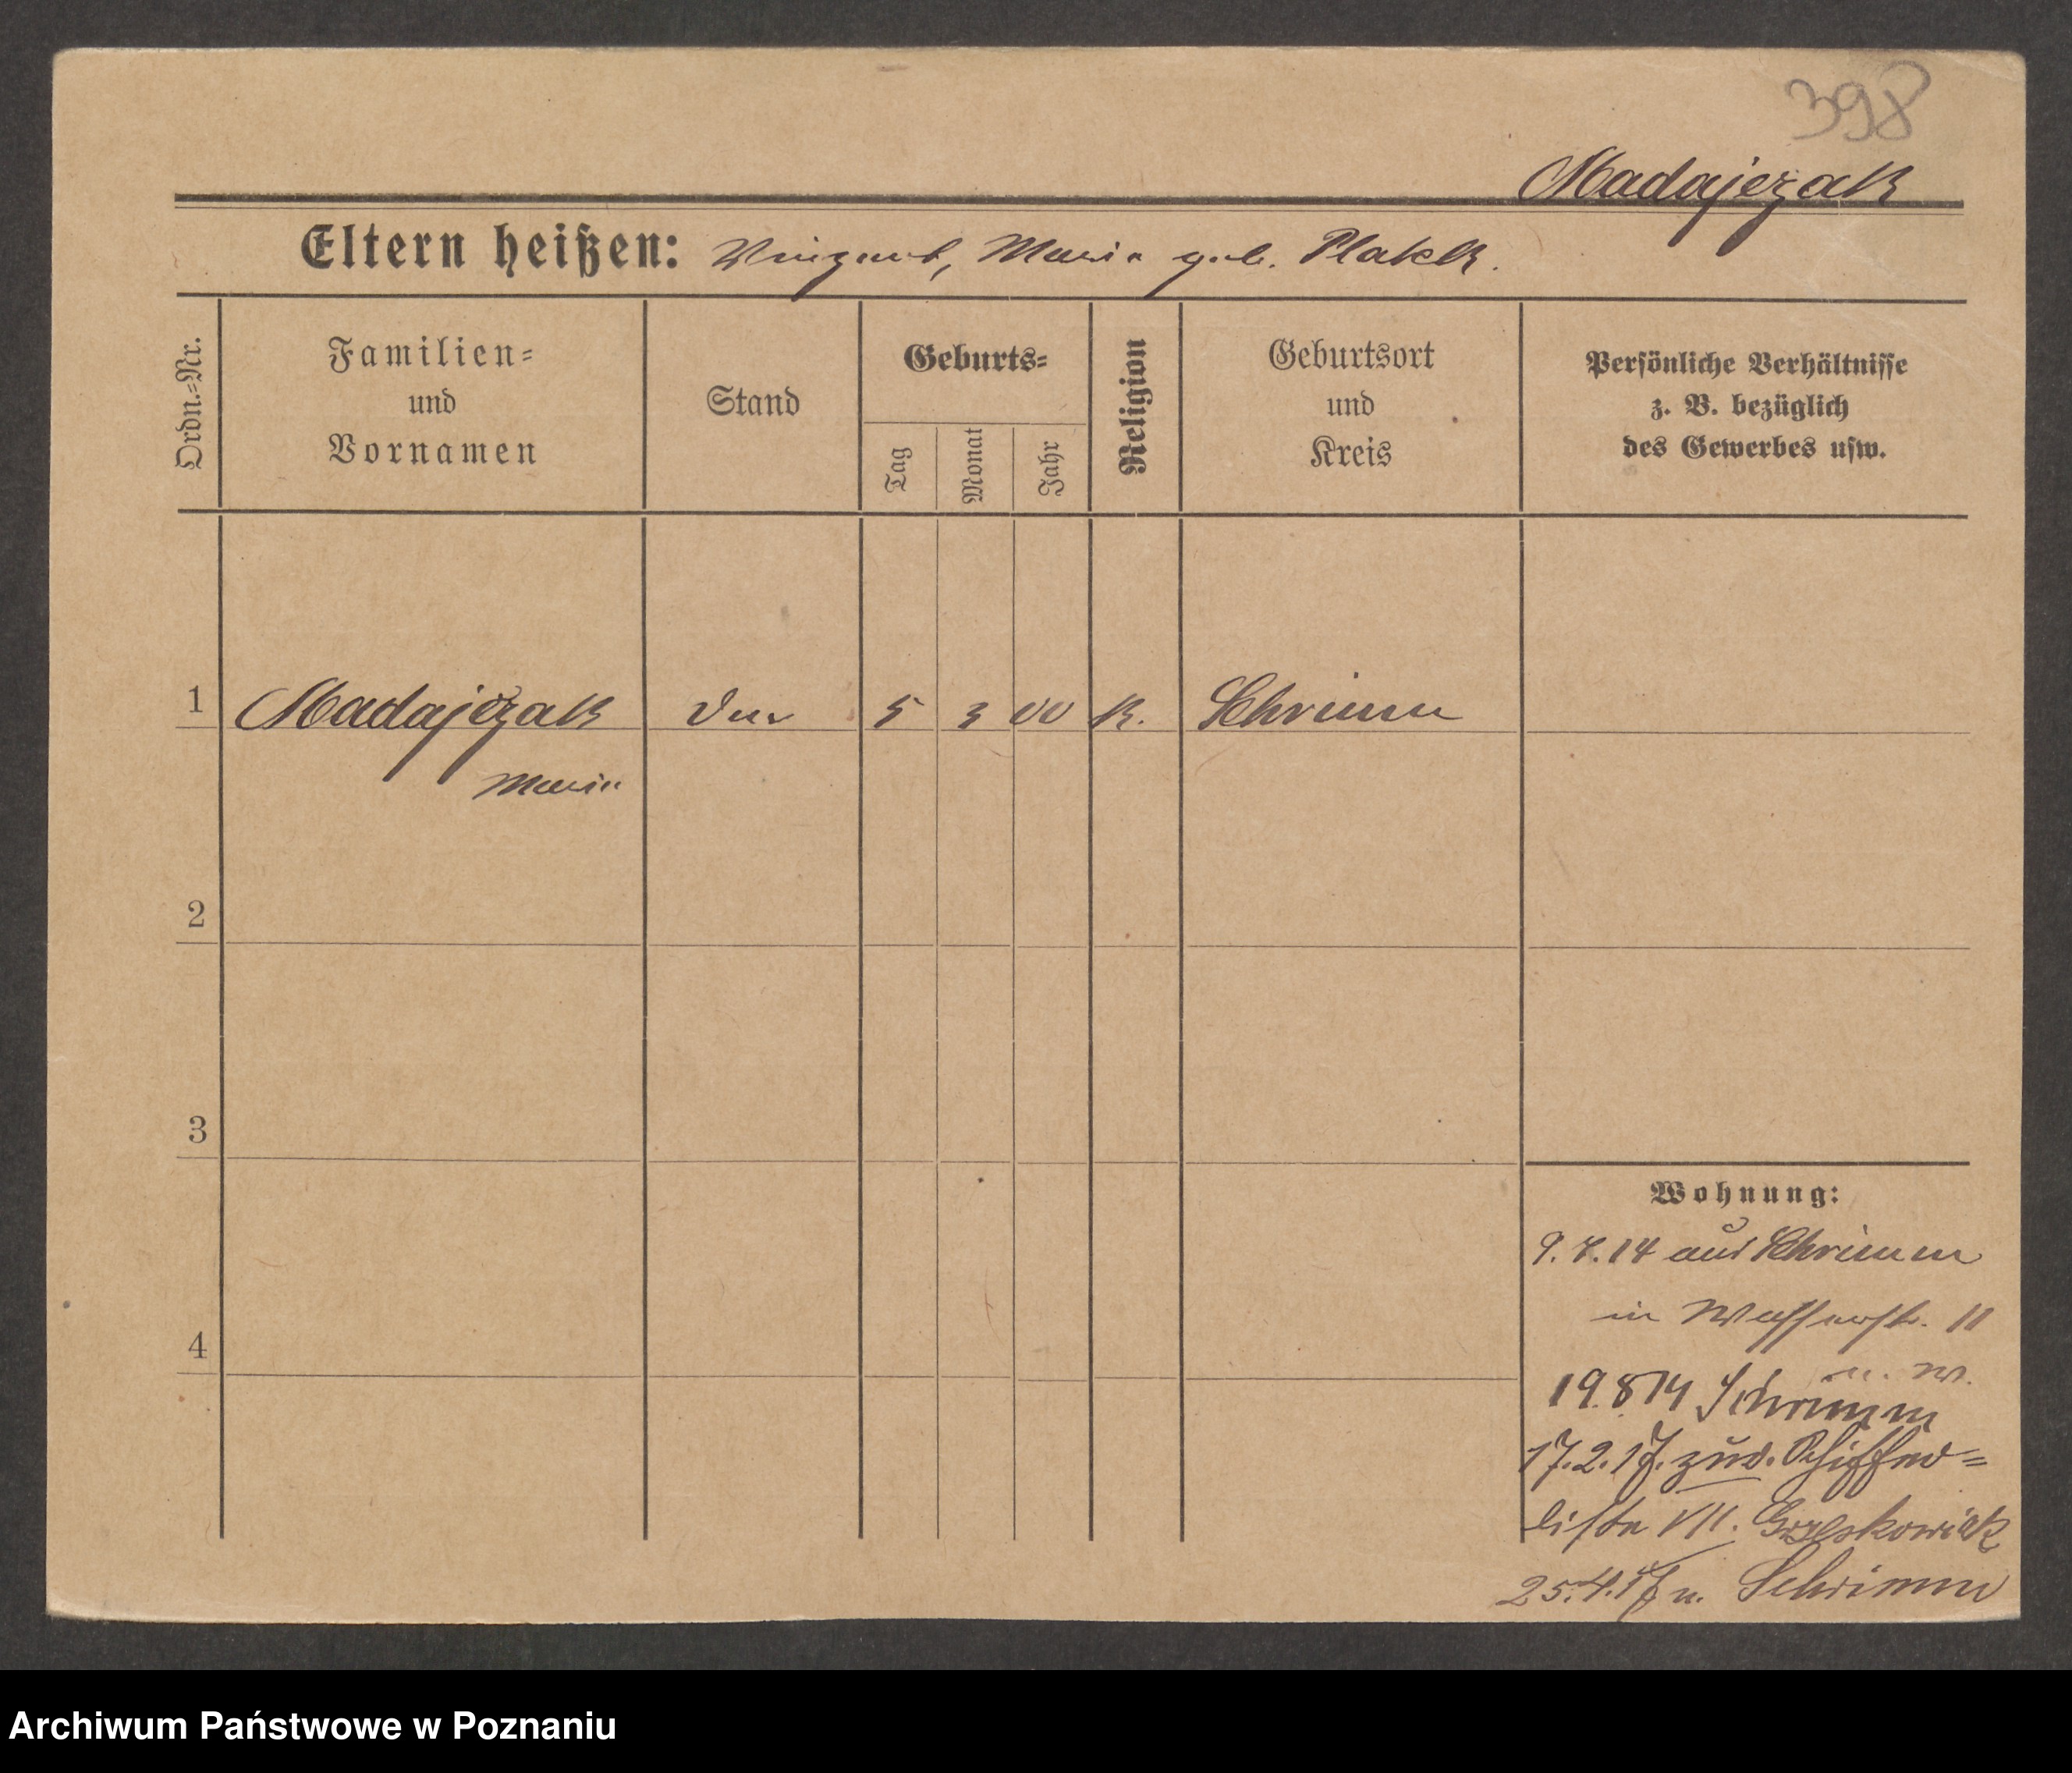 398
Madajczak
Eltern heißen: Vinzent, Maria geb.
Ordn.=Nr.
Familien=
und
Vornamen
Stand
Geburts=
Tag
Monat
Jahr
Religion
Geburtsort
und
Kreis
Persönliche Verhältnisse
z. B. bezüglich
des Gewerbes usw.
1 Madajczak 5 3 00 K. Schrimm
Maria
2
3
4
Wohnung:
9. 7. 14 aus Schrimm
in Wasserstr. 11
19.8 14 Schrimm
17. 2. 17. zud. Schiffer=
liste VII. Grzeskowiak
25.4.17 n. Schrimm
Archiwum Państwowe w Poznaniu